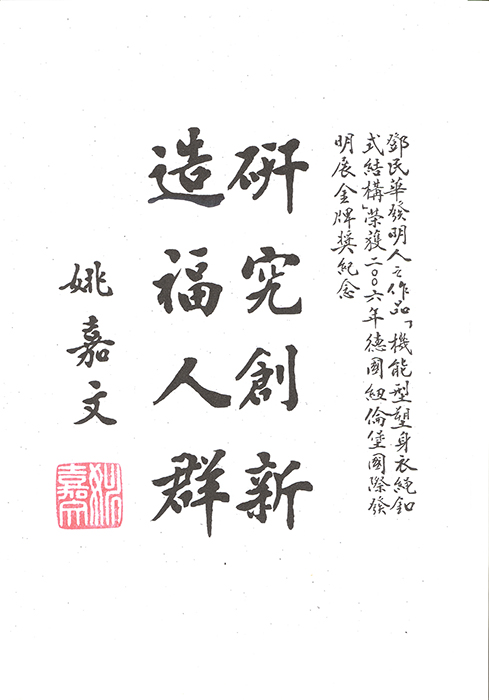 鄧民華發明人之作品「機能型塑身衣純釦
式結構」榮獲二００六年德國紐倫堡國際發
明展金牌獎紀念
研究創新
造福人群
姚嘉文
姚嘉文